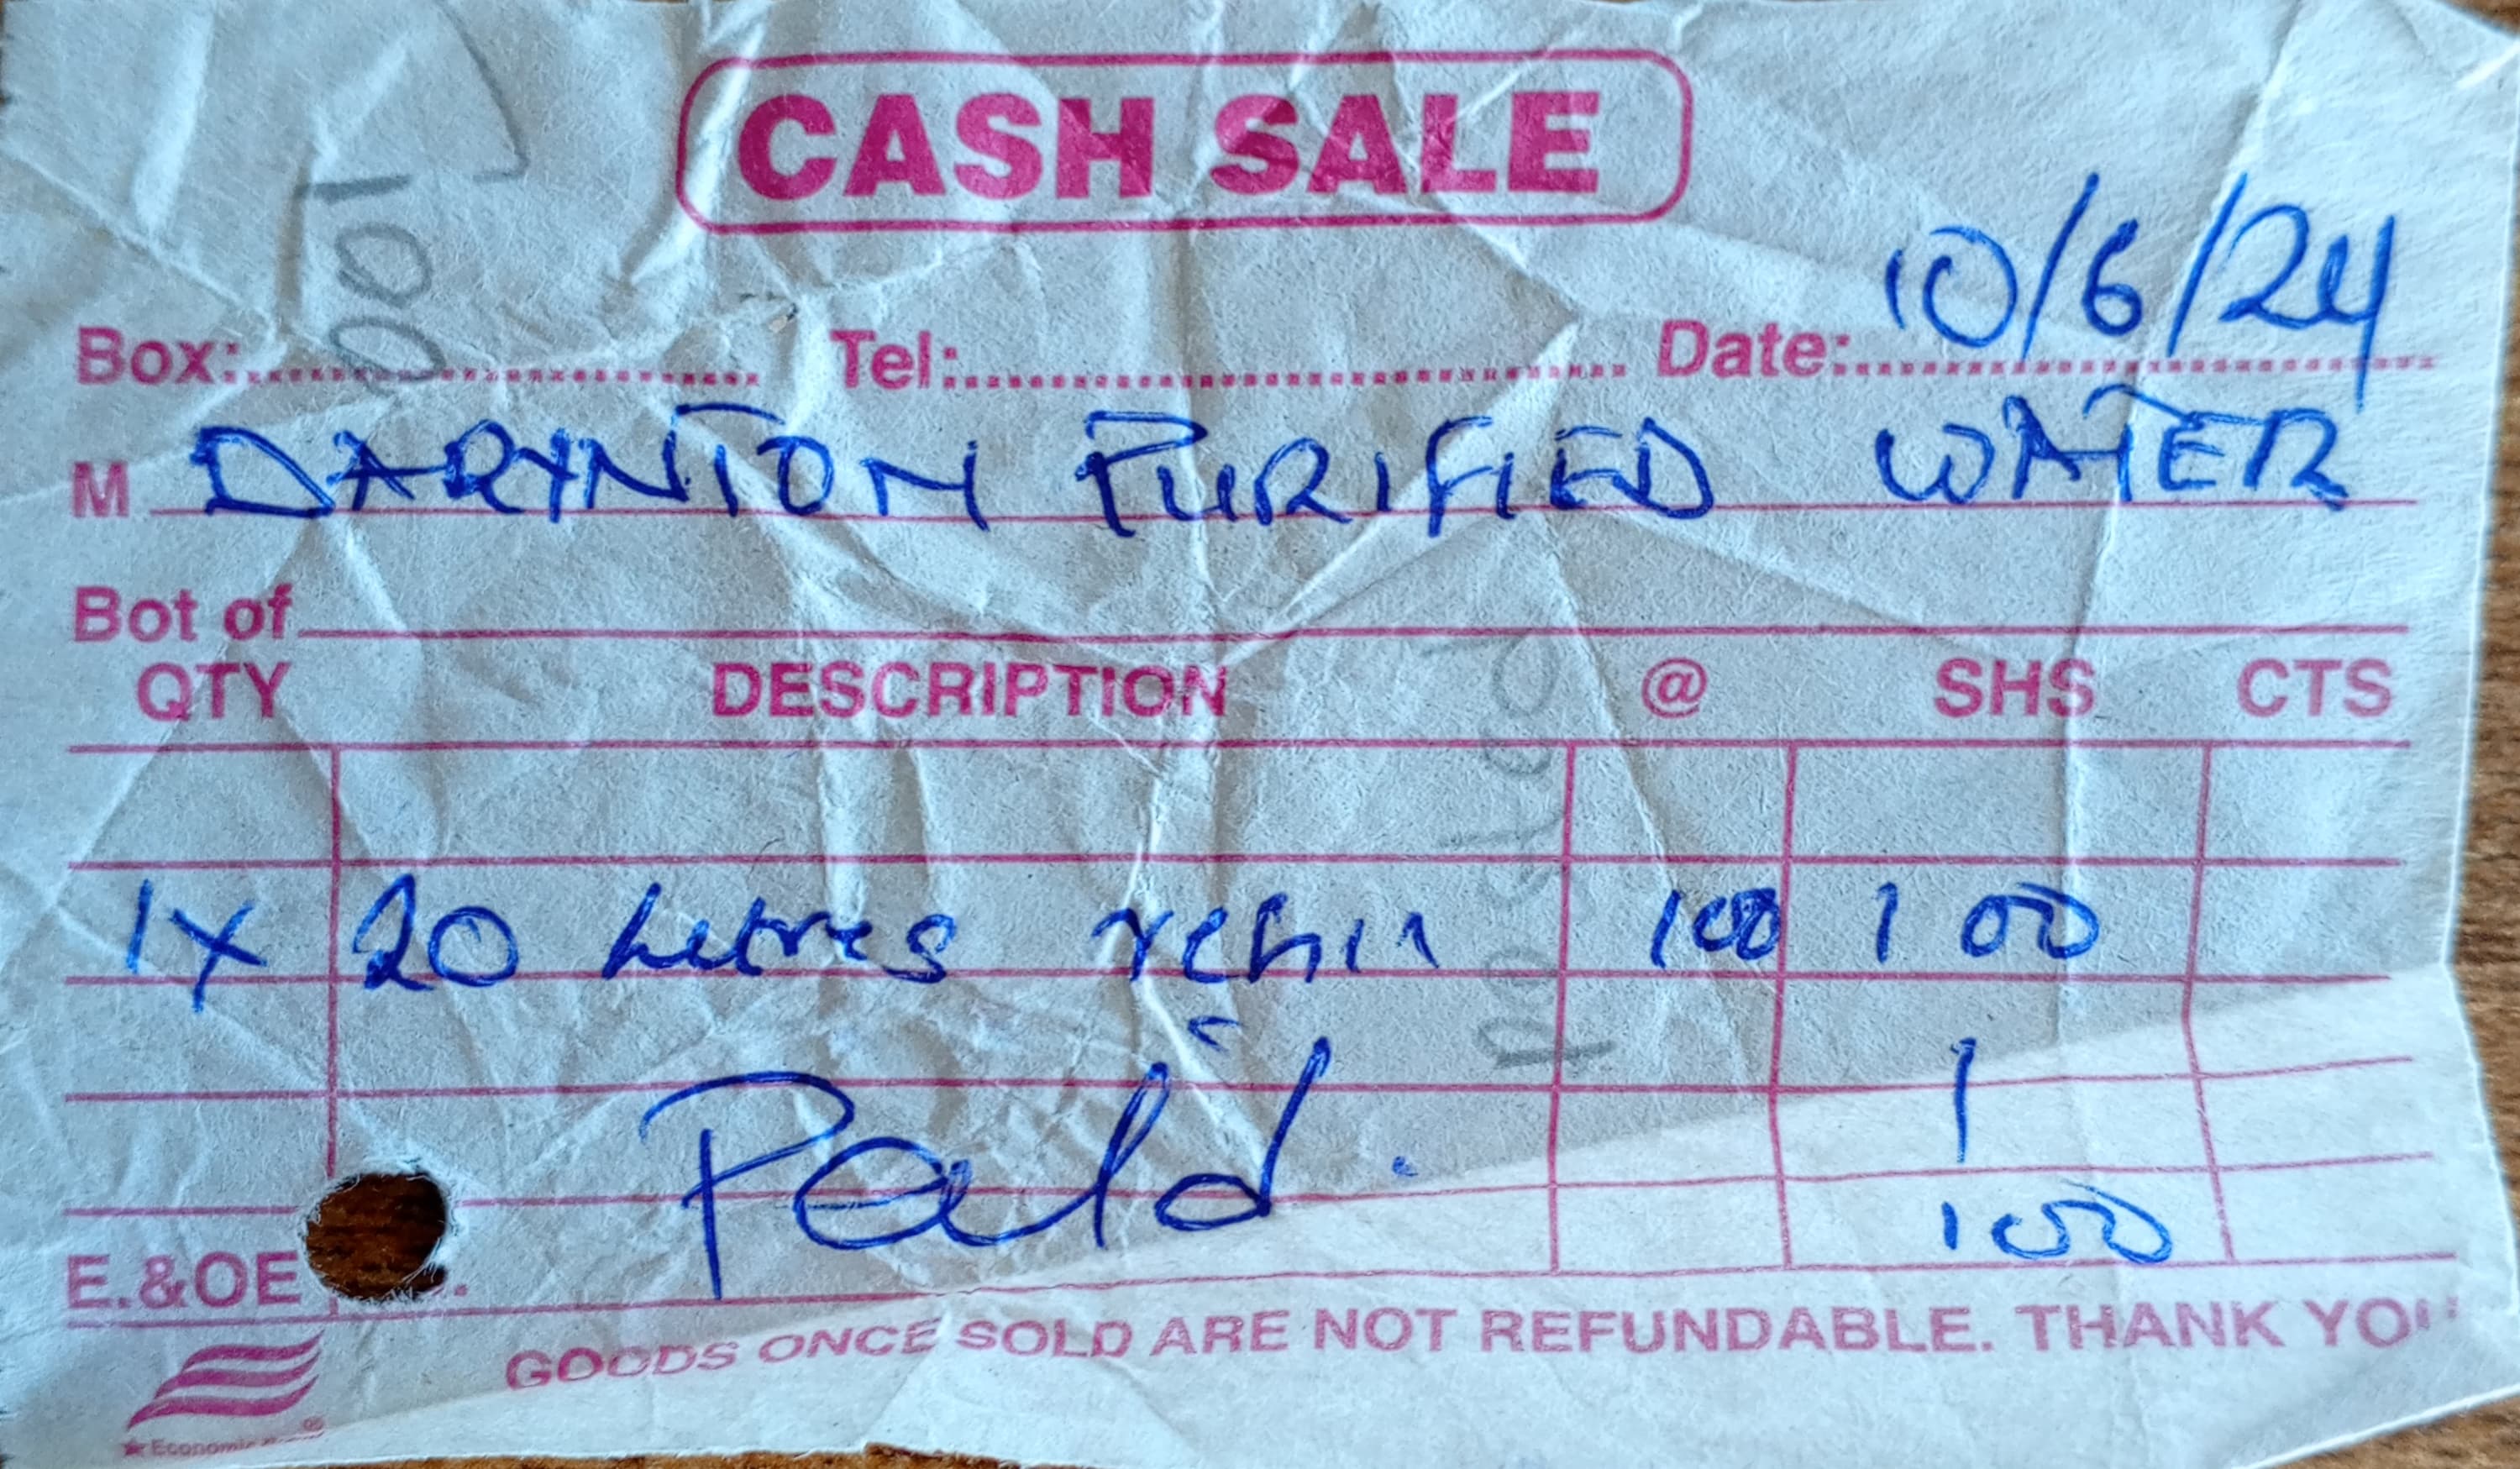 CASH SALE
1001
Box: Tel: Date: 10/6/24
M DARYNTON PURIFIED WATER
Bot of
QTY DESCRIPTION @ SHS CTS
posted
1x 20 Litres refill 100 100
Paid.
100
E.&OE
GOODS ONCE SOLD ARE NOT REFUNDABLE. THANK YOU
Economic